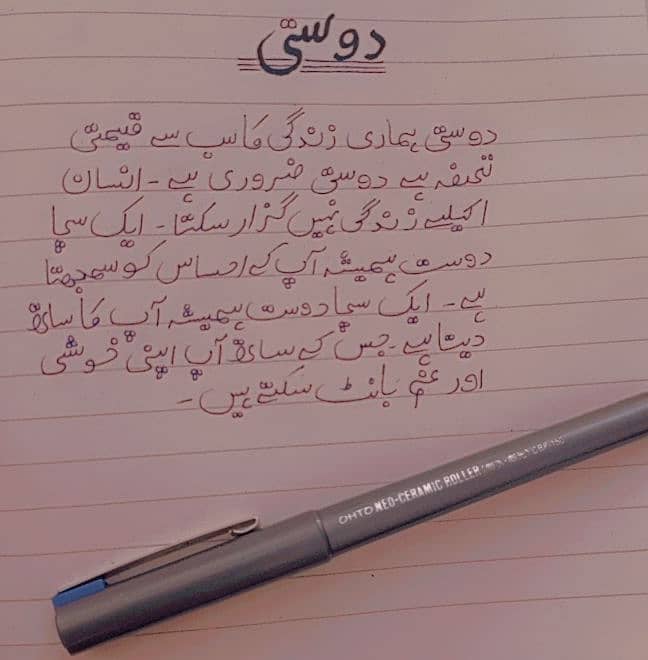 دوستی
دوستی ہماری زندگی کا سب سے قیمتی
تحفہ ہے دوستی ضروری ہے ۔ انسان
اکیلے زندگی نہیں گزار سکتا ۔ ایک سچا
دوست ہمیشہ آپ کے احساس کو سمجھتا
ہے ۔ ایک سچا دوست ہمیشہ آپ کا ساتھ
دیتا ہے ۔ جس کے ساتھ آپ اپنی خوشی
اور غم بانٹ سکتے ہیں ۔
OHTO NEO-CERAMIC ROLLER